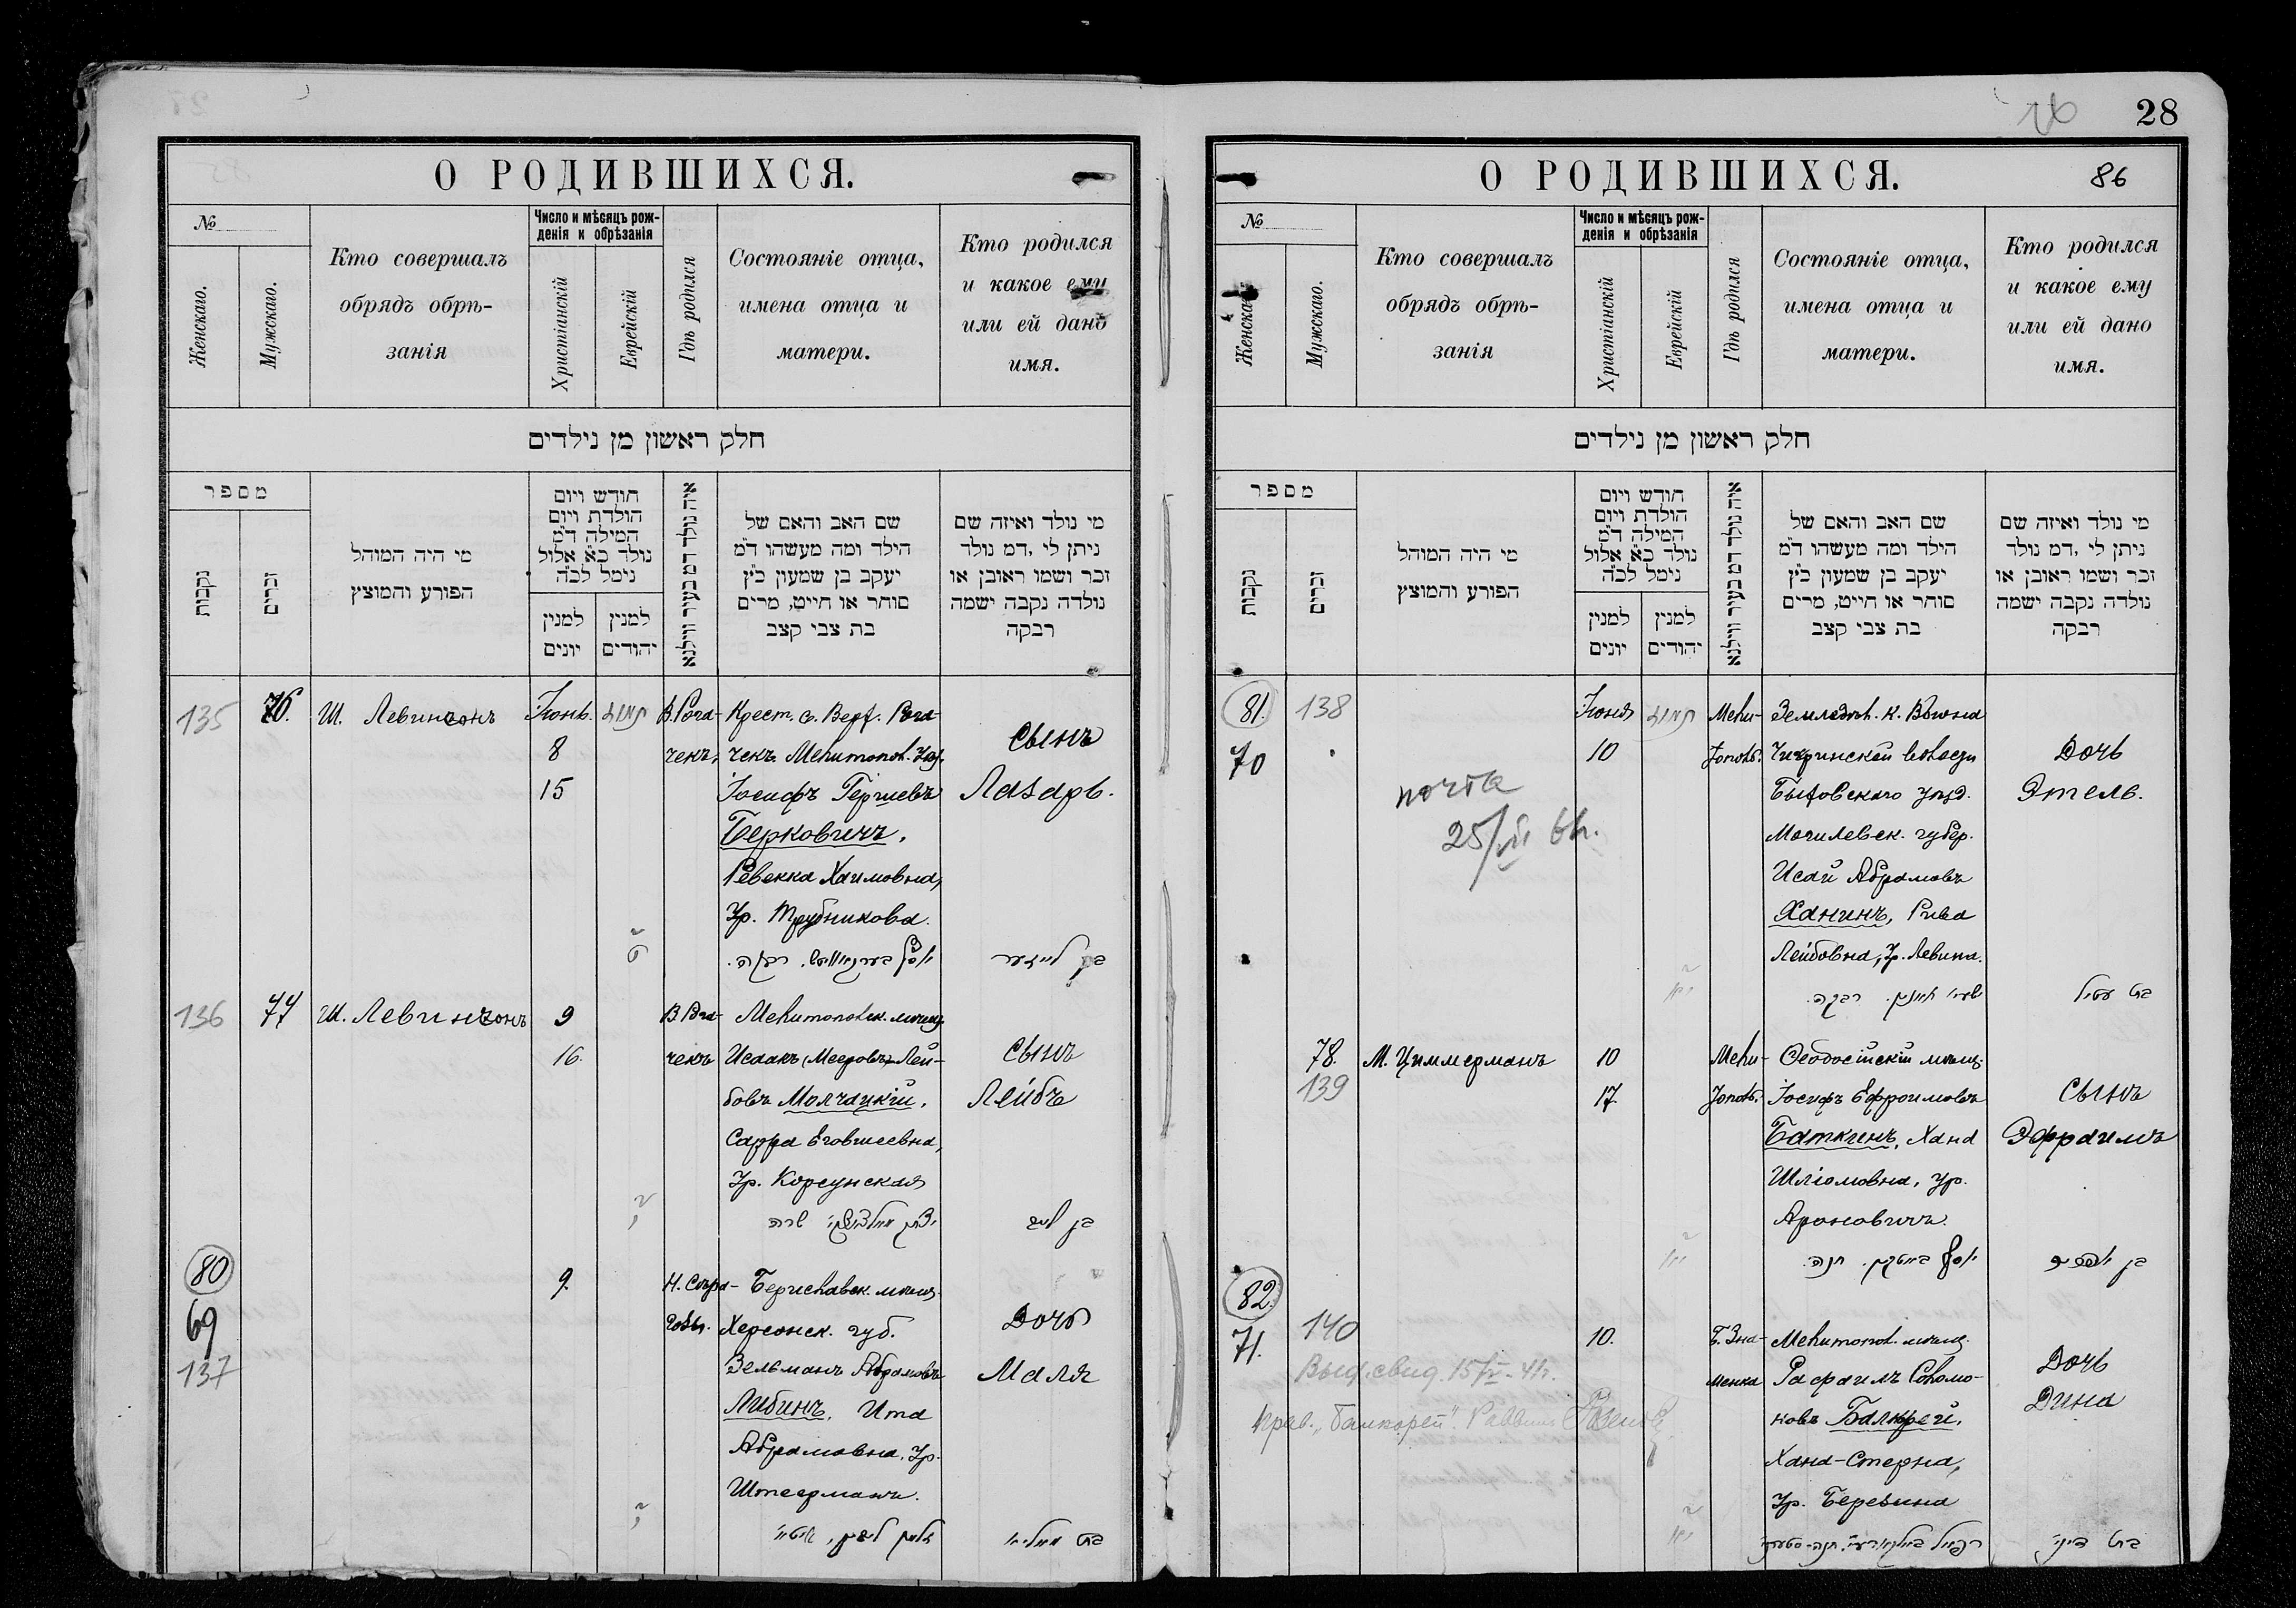 28
О РОДИВШИХСЯ.
№
Женскаго.
Мужскаго.
Кто совершалъ
обрядъ обрѣ-
занія
Число и мѣсяцъ рож-
денія и обрѣзанія
Христіанскій
Еврейскій
Гдѣ родился
Состояніе отца,
имена отца и
матери.
Кто родился
и какое ему
или ей дано
имя.
חלק ראשון מן נילדים
מספר
נקבות
זכרים
מי היה המוהל
הפורע והמוצץ
חודש ויום
הולדת ויום
המילה ד״מ
נולד כ״א אלול
נימל לכ״ה
למנין
יונים
למנין
יהודים
איה נולד דמ בעיר ווילנא
שם האב והאם של
הילד ומה מעשהו ד״מ
יעקב בן שמעון כ״ץ
סוחר או חייט, מרים
בת צבי קצב
מי נולד ואיזה שם
ניתן לי, דמ נולד
זכר ושמו ראובן או
נולדה נקבה ישמה
רבקה
135
76.
Ш. Левинсонъ
Іюнь.
8
15
תמוז
В. Рога-
чекъ,
Крест. с. Верх. Рога-
чекъ Мелитопол. уѣз.
Іосифъ Гершевъ
Берковичъ,
Ревекка Хаимовна,
Ур. Трубникова.
Сынъ
Лазарь.
136
77
Ш. Левинсонъ
9
16.
В. Рога-
чекъ
Мелитопольск. мѣщ.
Исаакъ (Мееровъ) Лей-
бовъ Молчацкій,
Сарра Еговшеевна,
Ур. Корсунская
Сынъ
Лейбъ
80
69
137
9.
Н. Сѣро-
гозы.
Бериславск. мѣщ.
Херсонск. губ.
Зельманъ Абрамовъ
Либинъ, Ита
Абрамовна, Ур.
Штеерманъ.
Дочь
Маля
О РОДИВШИХСЯ.
86
№
Женскаго.
Мужскаго.
Кто совершалъ
обрядъ обрѣ-
занія
Число и мѣсяцъ рож-
денія и обрѣзанія
Христіанскій
Еврейскій
Гдѣ родился
Состояніе отца,
имена отца и
матери.
Кто родился
и какое ему
или ей дано
имя.
חלק ראשון מן נילדים
מספר
נקבות
זכרים
מי היה המוהל
הפורע והמוצץ
חודש ויום
הולדת ויום
המילה ד״מ
נולד כ״א אלול
נימל לכ״ה
למנין
יונים
למנין
יהודים
איה נולד דמ בעיר ווילנא
שם האב והאם של
הילד ומה מעשהו ד״מ
יעקב בן שמעון כ״ץ
סוחר או חייט, מרים
בת צבי קצב
מי נולד ואיזה שם
ניתן לי, דמ נולד
זכר ושמו ראובן או
נולדה נקבה ישמה
רבקה
81.
138
70
почта
Іюня
10
תמוז
Мели-
тополь.
Земледѣл. к.
волости
Быховскаго уѣзд.
Могилевск. губер.
Исай Абрамовъ
Ханинъ, Рива
Лейбовна, Ур. Левина.
Дочь
Этель.
78.
139
М. Циммерманъ
10
17.
Мели-
тополь.
Ѳеодосійскій мѣщ.
Іосифъ Ефроимовъ
Баткинъ, Хана
Шліомовна, Ур.
Ароновичъ.
Сынъ
Эфраимъ
82.
140
71.
Выд. свид.
10.
Б. Зна-
менка
Мелитопол. мѣщ.
Рафаилъ Соломо-
новъ
Хана-Стерна,
Ур. Беревина
Дочь
Дина